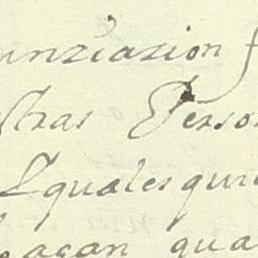 unziazion f
stras Perso
Equalesqui
agan qua